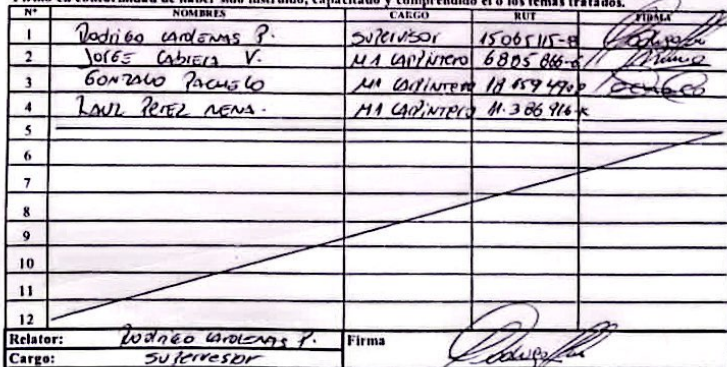 Firmo en conformidad de haber sido instruido, capacitado y comprendido el o los temas tratados.
N° NOMBRES CARGO RUT FIRMA
1 Rodrigo Cardenas P. Supervisor 15065115-8
2 Jorge Cabrera V. M1 Carpintero
3 Gonzalo Pacheco M1 Carpintero
4 Raul Perez Mena. M1 Carpintero 11.386 916-K
5
6
7
8
9
10
11
12
Relator: Rodrigo Cardenas P. Firma
Cargo: Supervisor